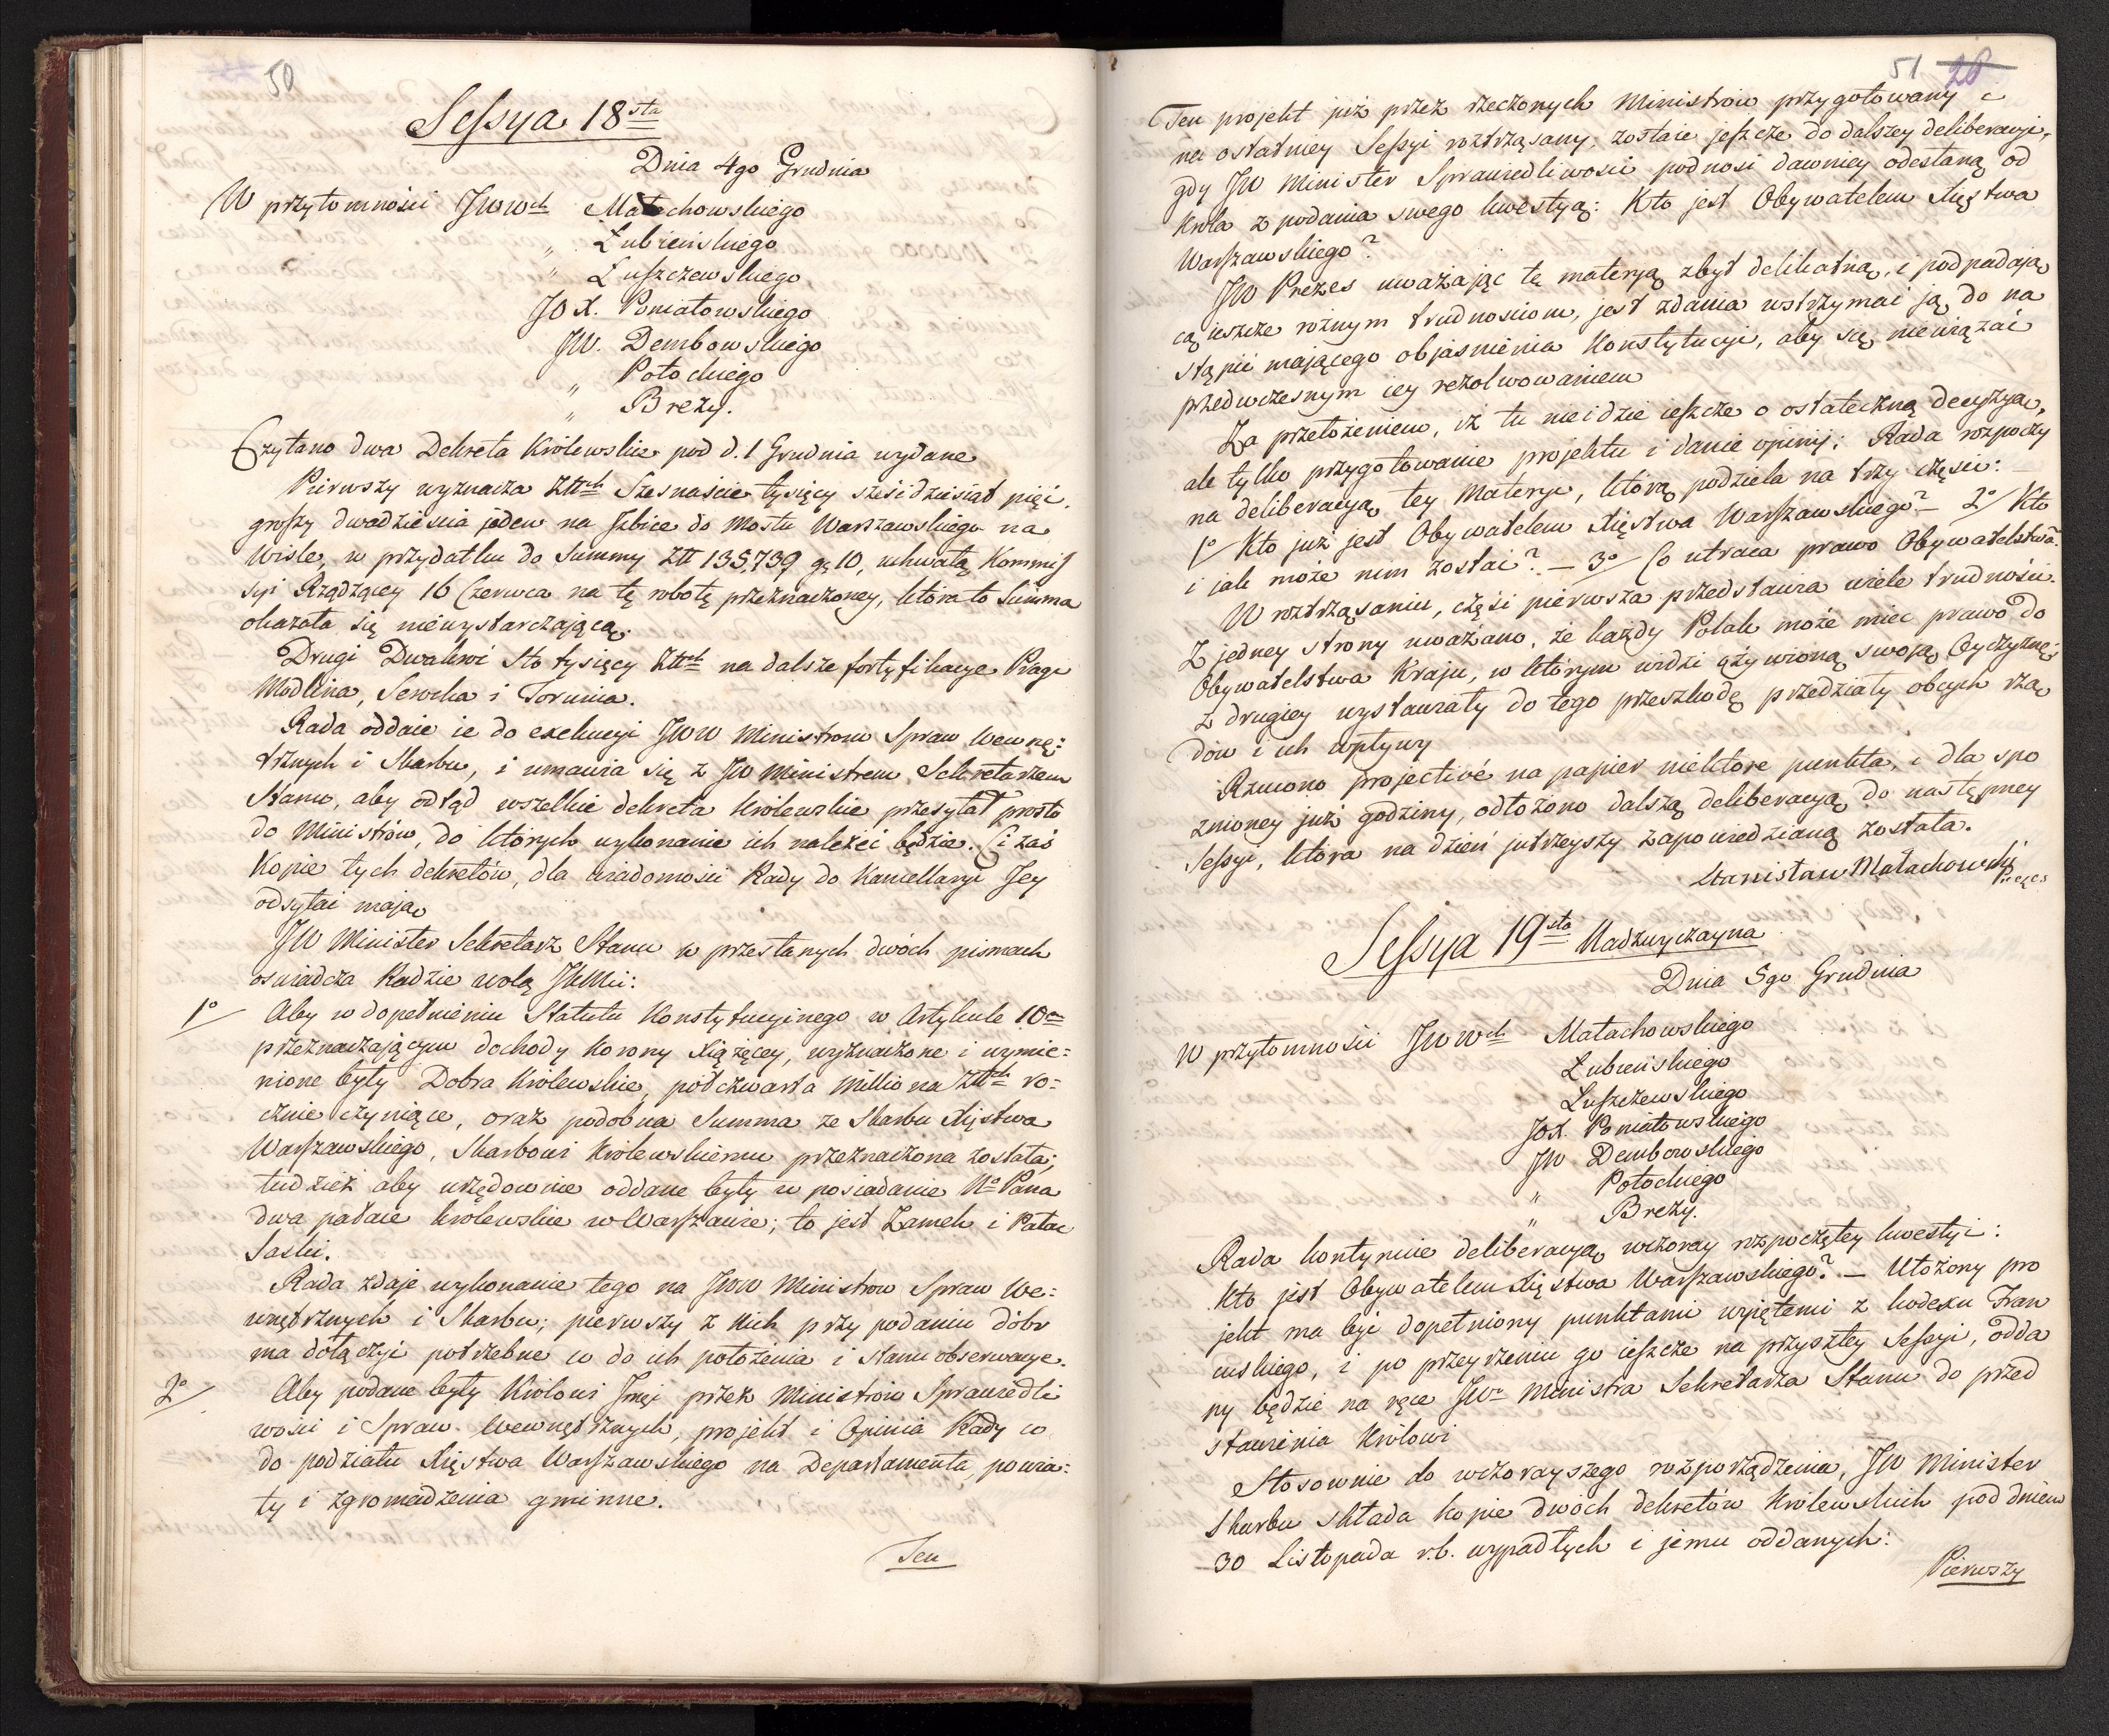 50
Sessya 18sta
Dnia 4go Grudnia
W przytomności JWWch Małachowskiego
" Łubieńskiego
" Łuszczewskiego
JOX. Poniatowskiego
JW. Dembowskiego
" Potockiego
" Brezy.
Czytano dwa Dekreta Królewskie pod d. 1 Grudnia wydane
Pierwszy wyznacza Złłch Szesnaście tysięcy sześćdziesiąt pięć,
groszy dwadzieścia jeden na Izbice do Mostu Warszawskiego na
Wiśle, w przydatku do Summy Złł 135,739 gr 10, uchwałą Kommis
syi Rządzącey 16 Czerwca na tę robotę przeznaczoney, która to Summa
okazała się niewystarczającą.
Drugi Dwakroć Sto tysięcy Złłch na dalsze fortyfikacye Pragi
Modlina, Serocka i Torunia.
Rada oddaie ie do exekucyi JWW Ministrom Spraw Wewnę=
trznych i Skarbu, i umawia się z JW Ministrem Sekretarzem
Stanu, aby odtąd wszelkie dekreta Królewskie przesyłał prosto
do Ministrów, do których wykonanie ich należeć będzie. Ci zaś
Kopie tych dekretów, dla wiadomości Rady do Kancellaryi Jey
odsyłać mają
JW Minister Sekretarz Stanu w przesłanych dwóch pismach
oświadcza Radzie wolą JKMci:
1o Aby w dopełnieniu Statutu Konstytucyinego w Artykule 10m
przeznaczającym dochody Korony Xiążęcey, wyznaczone i wymie=
nione były Dobra Królewskie, półczwarta Milliona Złłch ro=
cznie czyniące, oraz podobna Summa ze Skarbu Xięstwa
Warszawskiego, Skarbowi Królewskiemu przeznaczona została;
tudzież aby urzędownie oddane były w posiadanie No Pana
dwa pałace królewskie w Warszawie; to jest Zamek i Pałac
Saski.
Rada zdaje wykonanie tego na JWW Ministrow Spraw We=
wnętrznych i Skarbu; pierwszy z Nich przy podaniu dóbr
ma dołączyć potrzebne co do ich położenia i stanu obserwacye.
2o Aby podane były Królowi Jmci przez Ministrów Sprawiedli
wości i Spraw Wewnętrznych, projekt i Opinia Rady co
do podziału Xięstwa Warszawskiego na Departamenta, powia=
ty i zgromadzenia gminne.
Ten
51 28
Ten projekt już przez rzeczonych Ministrów przygotowany i
na ostatniey Sessyi roztrząsany, zostaie jeszcze do dalszey deliberacyi,
gdy JW Minister Sprawiedliwości podnosi dawniey odesłaną od
Króla z podania swego kwestyą: Kto jest Obywatelem Xięstwa
Warszawskiego?
JW Prezes uważając tę materyą zbyt delikatną, i podpadają
cą ieszcze rożnym trudnościom, jest zdania wstrzymać ją do na
stąpić mającego objaśnienia Konstytucyi, aby się niewiązać
przedwczesnym iey rezolwowaniem
Za przełożeniem, iż tu nieidzie ieszcze o ostateczną decyzyą,
ale tylko przygotowanie projektu i danie opinij; Rada rozpoczy
na deliberacyą tey Materyi, którą podziela na trzy części: _
1o Kto już jest Obywatelem Xięstwa Warszawskiego? _ 2o Kto
i jak może nim zostać? _ 3o Co utraca prawo Obywatelstwa.
W roztrząsaniu, część pierwsza przedstawia wiele trudności.
Z jedney strony uważano, że każdy Polak może mieć prawo do
Obywatelstwa Kraju, w którym widzi ożywioną swoją Oyczyznę;
z drugiey wystawiały do tego przeszkodę przedziały obcych rzą
dów i ich wpływy
Rzucono projectivé na papier niektóre punkta, i dla spo
znioney już godziny, odłożono dalszą deliberacyą do następney
Sessyi, która na dzień jutrzeyszy zapowiedzianą została.
Stanisław Małachowski
Prezes
Sessya 19sta Nadzwyczayna
Dnia 5go Grudnia
W przytomności JWWch Małachowskiego
Łubieńskiego
Łuszczewskiego
JOX. Poniatowskiego
JW Dembowskiego
" Potockiego
" Brezy.
Rada kontynuie deliberacyą wczoray rozpoczętey kwestyi:
Kto jest Obywatelem Xięstwa Warszawskiego? _ Ułożony pro
jekt ma być dopełniony punktami wyjętemi z kodexu Fran
cuskiego, i po przeyrzeniu go ieszcze na przyszłey Sessyi, odda
ny będzie na ręce JWo Ministra Sekretarza Stanu do przed
stawienia Królowi
Stosownie do wczorayszego rozporządzenia, JW Minister
Skarbu składa kopie dwóch dekretów Królewskich pod dniem
30 Listopada r.b. wypadłych i jemu oddanych:
Pierwszy